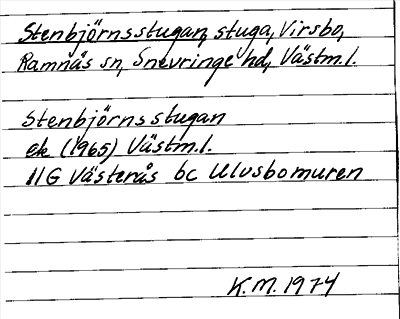 Stenbjörnsstugan, stuga, Virsbo,
Ramnäs sn, Snevringe hd, Västm.l.
Stenbjörnsstugan
ek (1965) Västm.l.
11G Västerås bc Ulvsbomuren
K.M. 1974